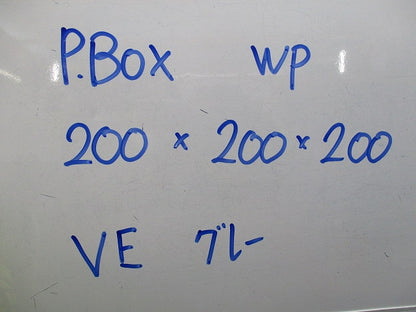 P.Box WP
200 × 200 × 200
VE グレー